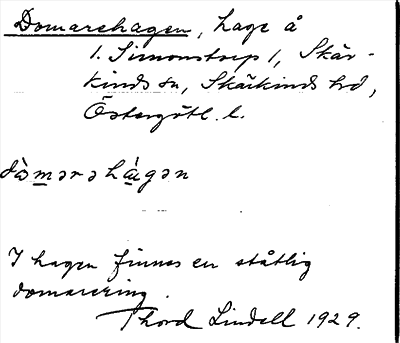 Domarehagen, hage å
1. Simonstorp 1, Skär-
kinds sn, Skärkinds hd,
Östergötl. l.
dò̀marahá̀gən
I hagen finnes en ståtlig
domarering.
Thord Lindell 1929.